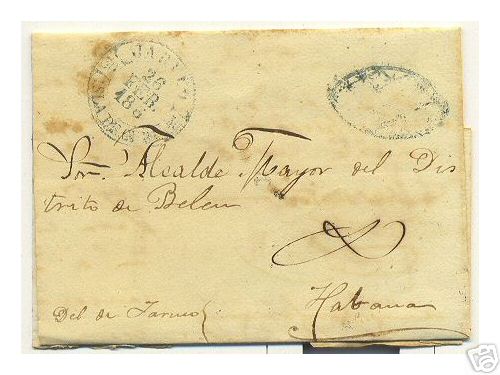 26
FEB
Sor. Alcalde Mayor del Dis
trito de Belen
Habana
Del de Jaruco